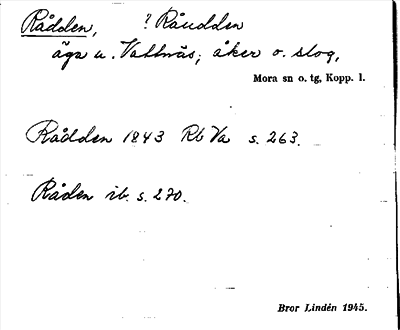 Rådden, ? Råudden
äga u. Vattnäs; åker o. skog,
Mora sn o. tg, Kopp. l.
Rådden 1843 Rb Va s. 263.
Råden ib. s. 270.
Bror Lindén 1945.